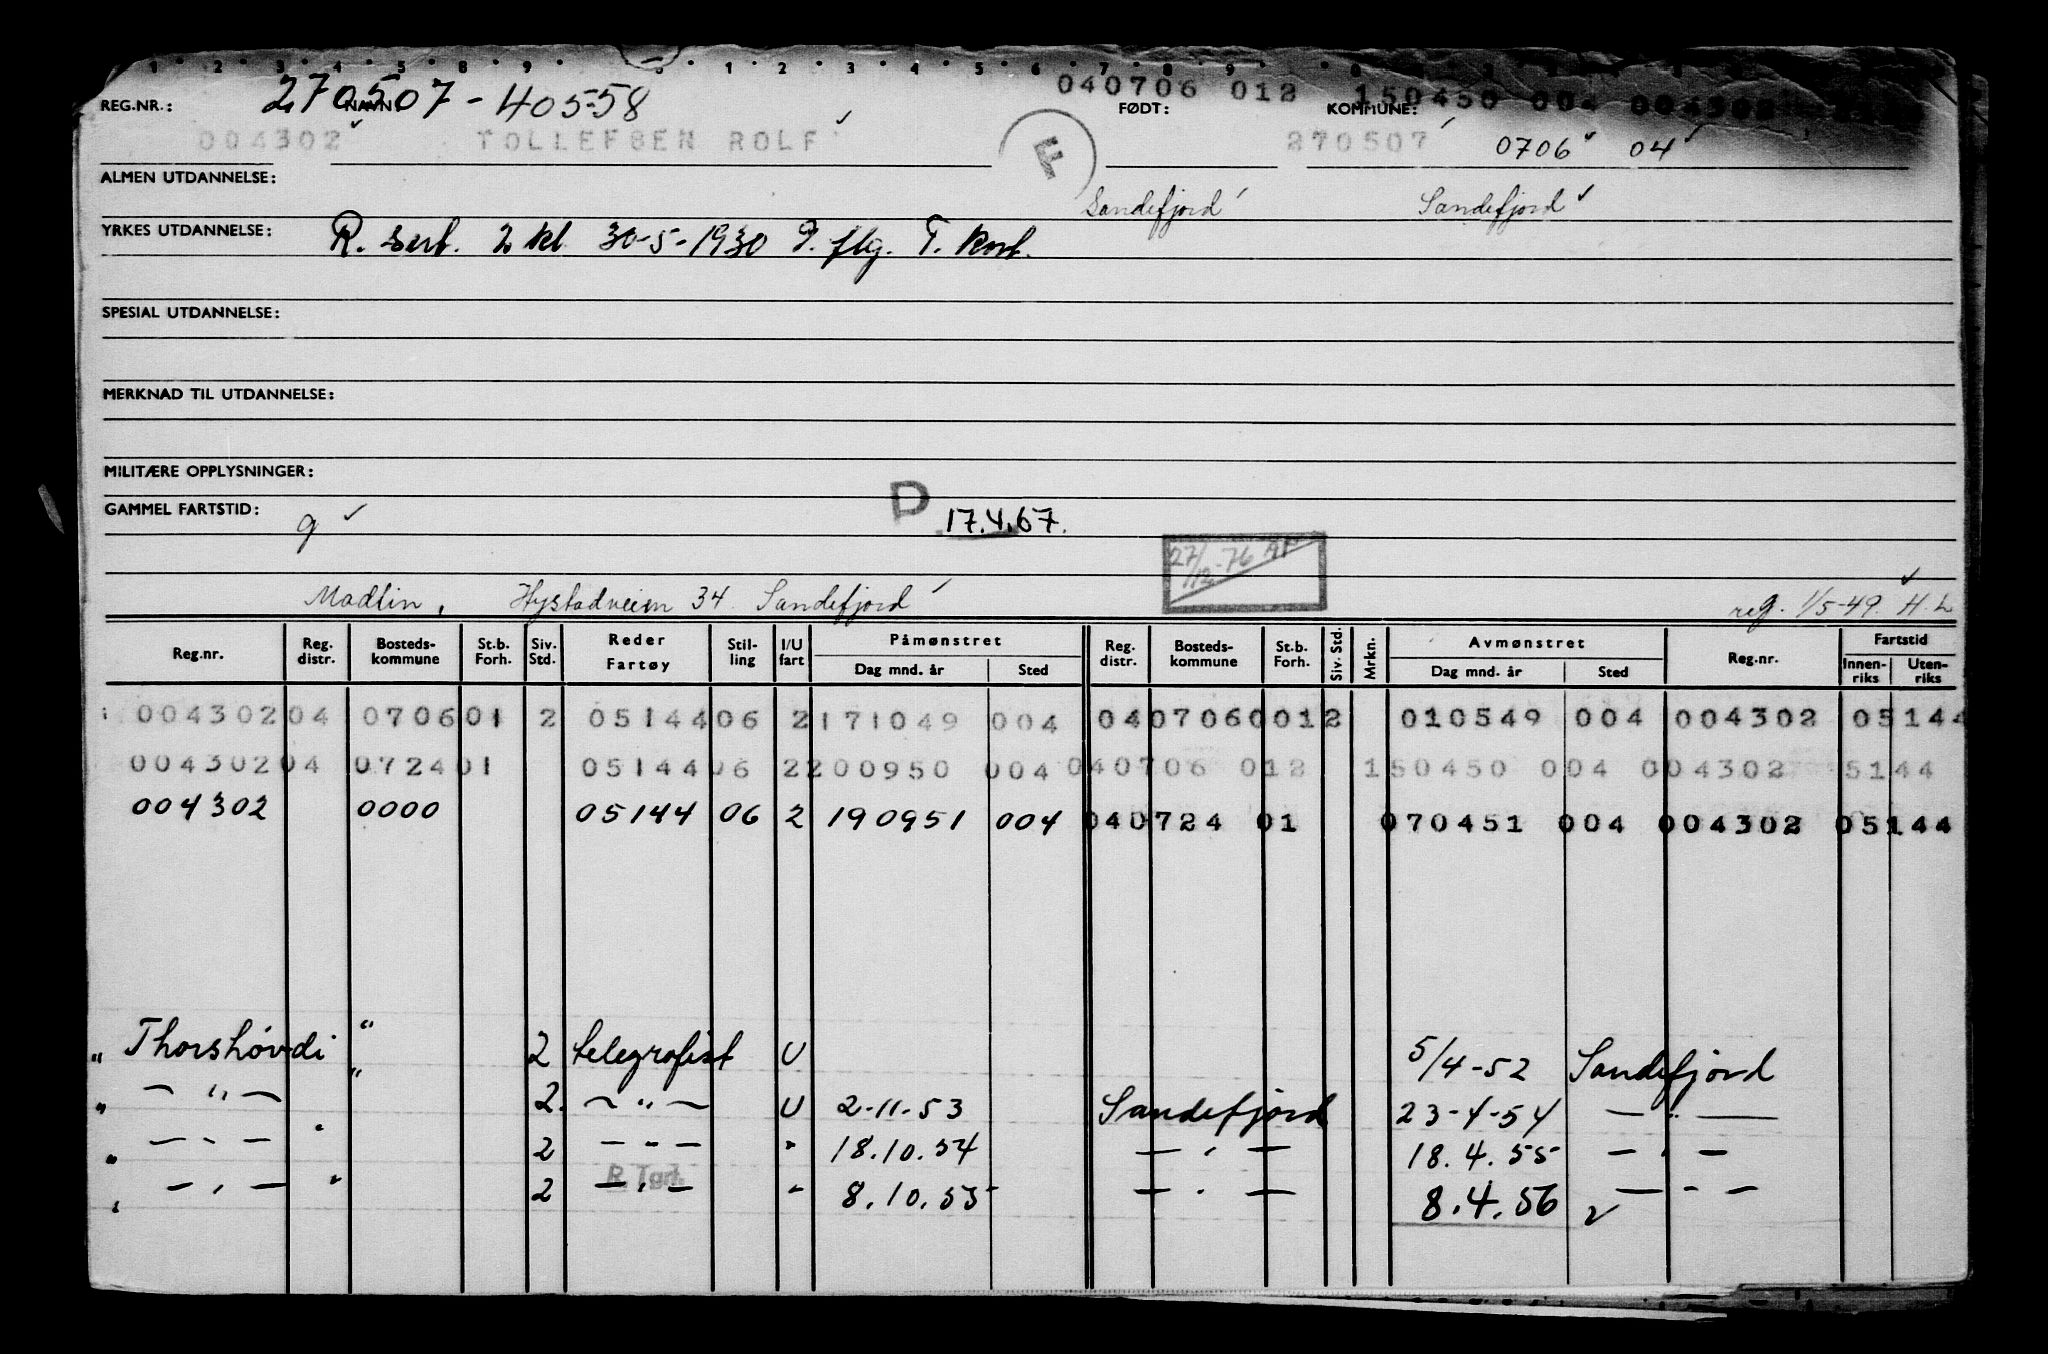 1 2 3 4 5 8 9 0 1 2 3 4 5 6 7 8 9
REG.NR.: 270507 - 40558 NAVN: 040706 012 FØDT: 150450 004 004302 KOMMUNE:
004302 TOLLEFSEN ROLF F 270507 0706 04
ALMEN UTDANNELSE: Sandefjord Sandefjord
YRKES UTDANNELSE: R. sert. 2 kl 30-5-1930 T. kort.
SPESIAL UTDANNELSE:
MERKNAD TIL UTDANNELSE:
MILITÆRE OPPLYSNINGER:
GAMMEL FARTSTID: g D 17.4.67.
27/12-76
Hystadveien 34 Sandefjord reg. 1/5-49. H. L
Reg.nr. Reg. distr. Bosteds-kommune St.b. Forh. Siv. Std. Reder Fartøy Stil-ling I/U fart Påmønstret Dag mnd. år Sted Reg. distr. Bosteds-kommune St.b. Forh. Siv. Std. Mrkn. Avmønstret Dag mnd. år Sted Reg.nr. Fartstid Innen-riks Uten-riks
004302 04 0706 01 2 05144 06 2 171049 004 04 0706 0012 010549 004 004302 05144
004302 04 0724 01 05144 06 2 200950 004 040706 012 150450 004 004302 5144
004302 0000 05144 06 2 190951 004 040724 01 070451 004 004302 05144
" Thorshövdi " 2 telegrafist U 5/4-52 Sandefjord
" — " — " 2. — " — U 2-11-53 Sandefjord 23-4-54 — " —
" — " — " 2 — " — " 18.10.54 — " — 18.4.55 — " —
R Tgrf.
" — " — " 2 — " — " 8.10.55 — " — 8.4.56 — " —